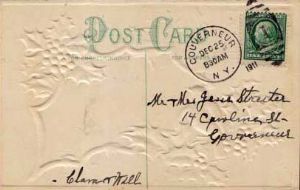 POST CARD
GOUVERNEUR
DEC 25
830AM
1911
N.Y.
Mr & Mrs Jane Streeter
14 Caroline St
Gouverneur
Clara & Will